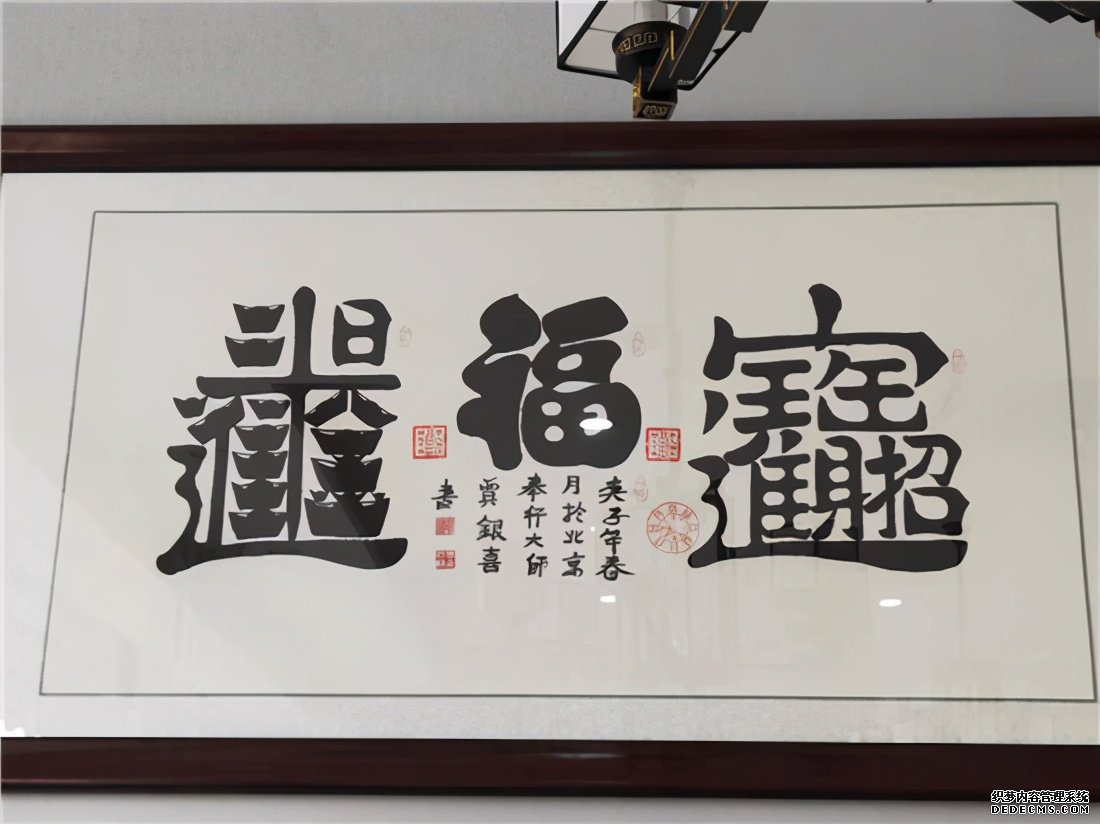 招財進寶
福
日進斗金
庚子年春
月於北京
奉仟大师
賈銀喜
書
织梦内容管理系统
DEDECMS.COM